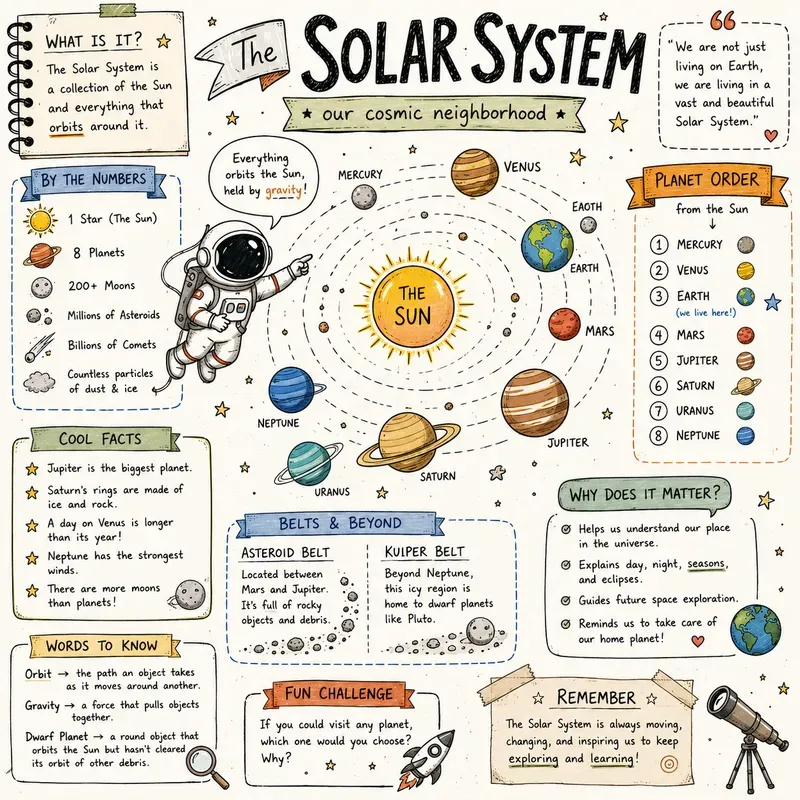 WHAT IS IT?
The Solar System is
a collection of the Sun
and everything that
orbits around it.
The
SOLAR SYSTEM
★ our cosmic neighborhood ★
“
"We are not just
living on Earth,
we are living in a
vast and beautiful
Solar System."
BY THE NUMBERS
1 Star (The Sun)
8 Planets
200+ Moons
Millions of Asteroids
Billions of Comets
Countless particles
of dust & ice
Everything
orbits the Sun,
held by gravity!
MERCURY
VENUS
EAOTH
EARTH
THE
SUN
MARS
JUPITER
SATURN
URANUS
NEPTUNE
PLANET ORDER
from the Sun
↓
1 MERCURY
2 VENUS
3 EARTH
(we live here!)
4 MARS
5 JUPITER
6 SATURN
7 URANUS
8 NEPTUNE
COOL FACTS
Jupiter is the biggest planet.
Saturn's rings are made of
ice and rock.
A day on Venus is longer
than its year!
Neptune has the strongest
winds.
There are more moons
than planets!
BELTS & BEYOND
ASTEROID BELT
Located between
Mars and Jupiter.
It's full of rocky
objects and debris.
KUIPER BELT
Beyond Neptune,
this icy region is
home to dwarf planets
like Pluto.
WHY DOES IT MATTER?
Helps us understand our place
in the universe.
Explains day, night, seasons,
and eclipses.
Guides future space exploration.
Reminds us to take care of
our home planet!
WORDS TO KNOW
Orbit → the path an object takes
as it moves around another.
Gravity → a force that pulls objects
together.
Dwarf Planet → a round object that
orbits the Sun but hasn't cleared
its orbit of other debris.
FUN CHALLENGE
If you could visit any planet,
which one would you choose?
Why?
REMEMBER
The Solar System is always moving,
changing, and inspiring us to keep
exploring and learning!